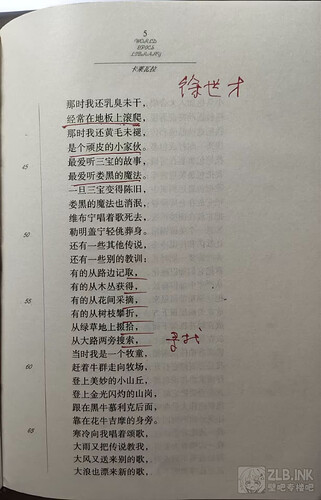 5
WORLD
EPICS
LIBRARY
卡莱瓦拉
徐世才
那时我还乳臭未干，
经常在地板上滚爬，
那时我还黄毛未褪，
是个顽皮的小家伙。
45 最爱听三宝的故事，
最爱听娄黑的魔法。
一旦三宝变得陈旧，
娄黑的魔法也消泯，
维布宁唱着歌死去，
50 勒明盖宁轻佻葬身。
还有一些其他传说，
还有一些别的教训：
有的从路边记取，
有的从木丛获得，
55 有的从花间采摘，
有的从树枝攀折，
从绿草地上掇拾，
从大路两旁搜索， 寻找
当时我是一个牧童，
60 赶着牛群走向牧场，
登上美妙的小山丘，
登上金光闪灼的山岗，
跟在黑牛慕利克后面，
靠在花牛吉摩的身旁。
65 寒冷向我唱着颂歌，
大雨又把传说教我，
大风又送来别的歌，
大浪也漂来新的歌，
ZLB.INK
壁吧看撸吧